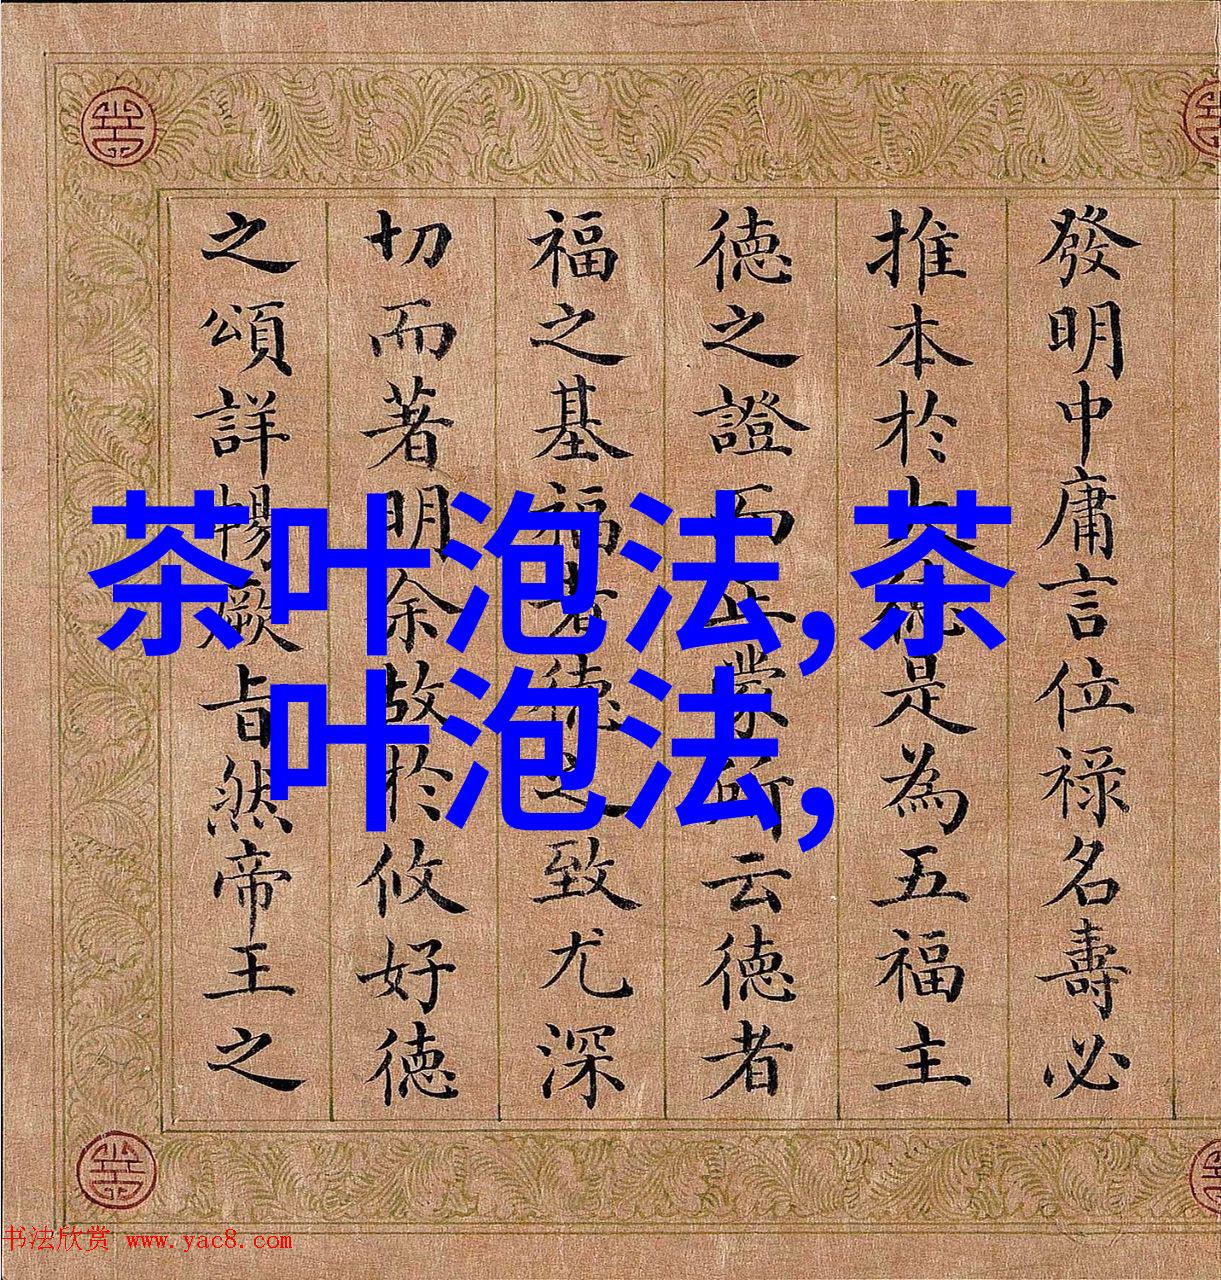 發明中庸言位祿名壽必
推本於大德是為五福主
德之證而所云德者
福之基福者德之致尤深
切而著明余故於攸好德
之頌詳暢厥旨然帝王之
茶叶泡法,茶
叶泡法,
书法欣赏 www.yac8.com